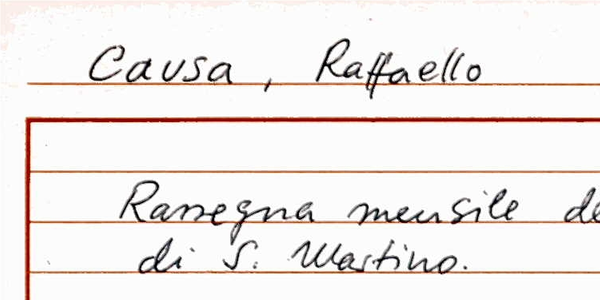 Causa, Raffaello
Rassegna mensile de
di S. Martino.